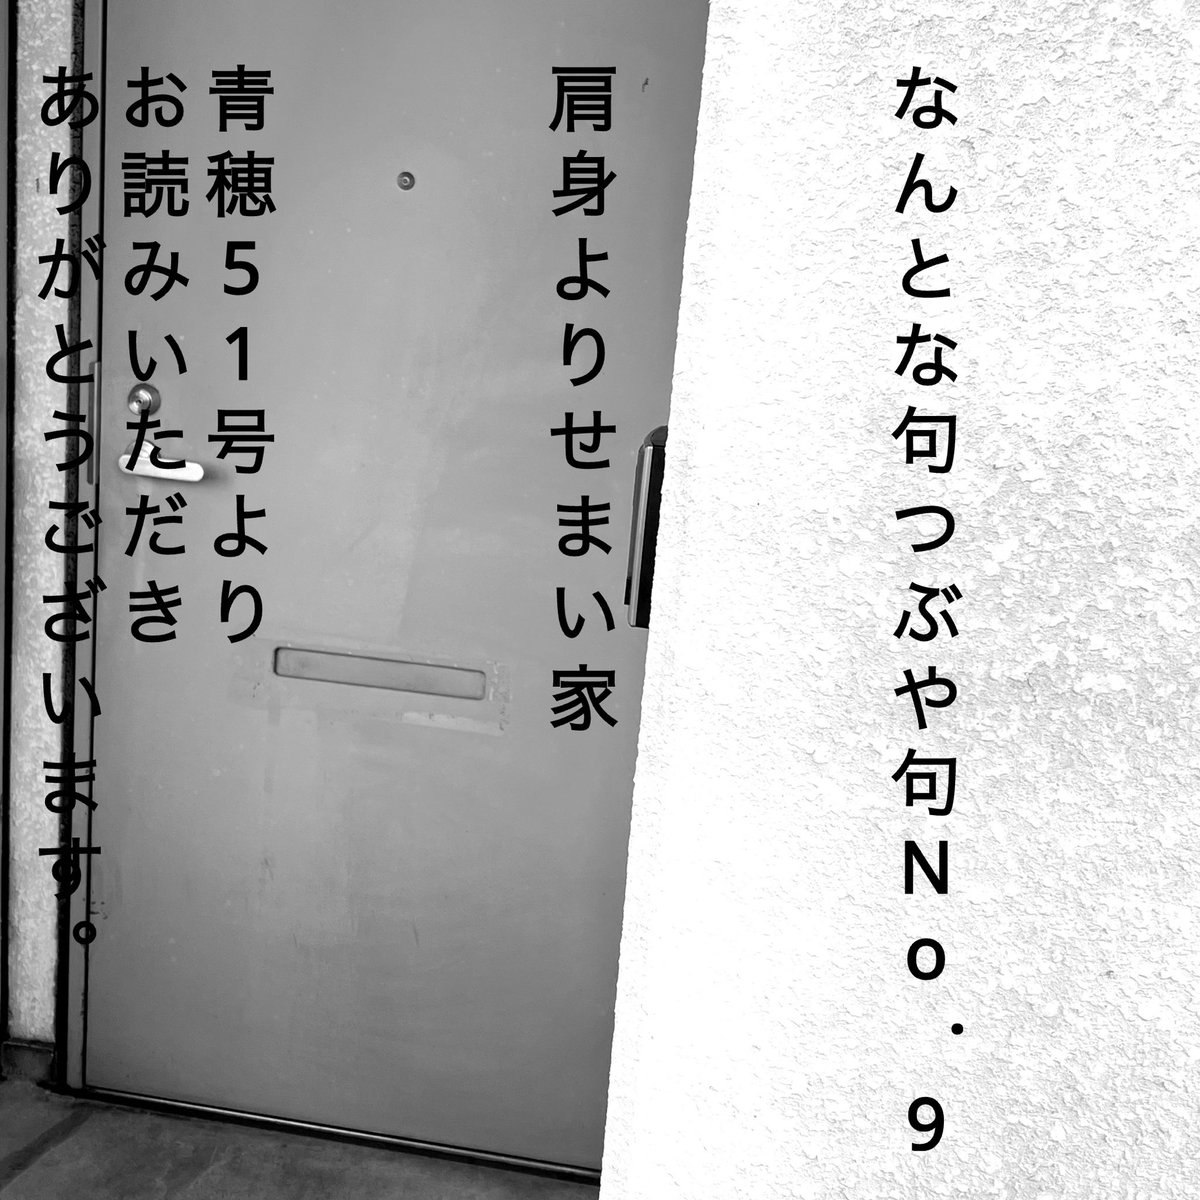 なんとな句つぶや句No.9
肩身よりせまい家
青穂51号より
お読みいただき
ありがとうございます。